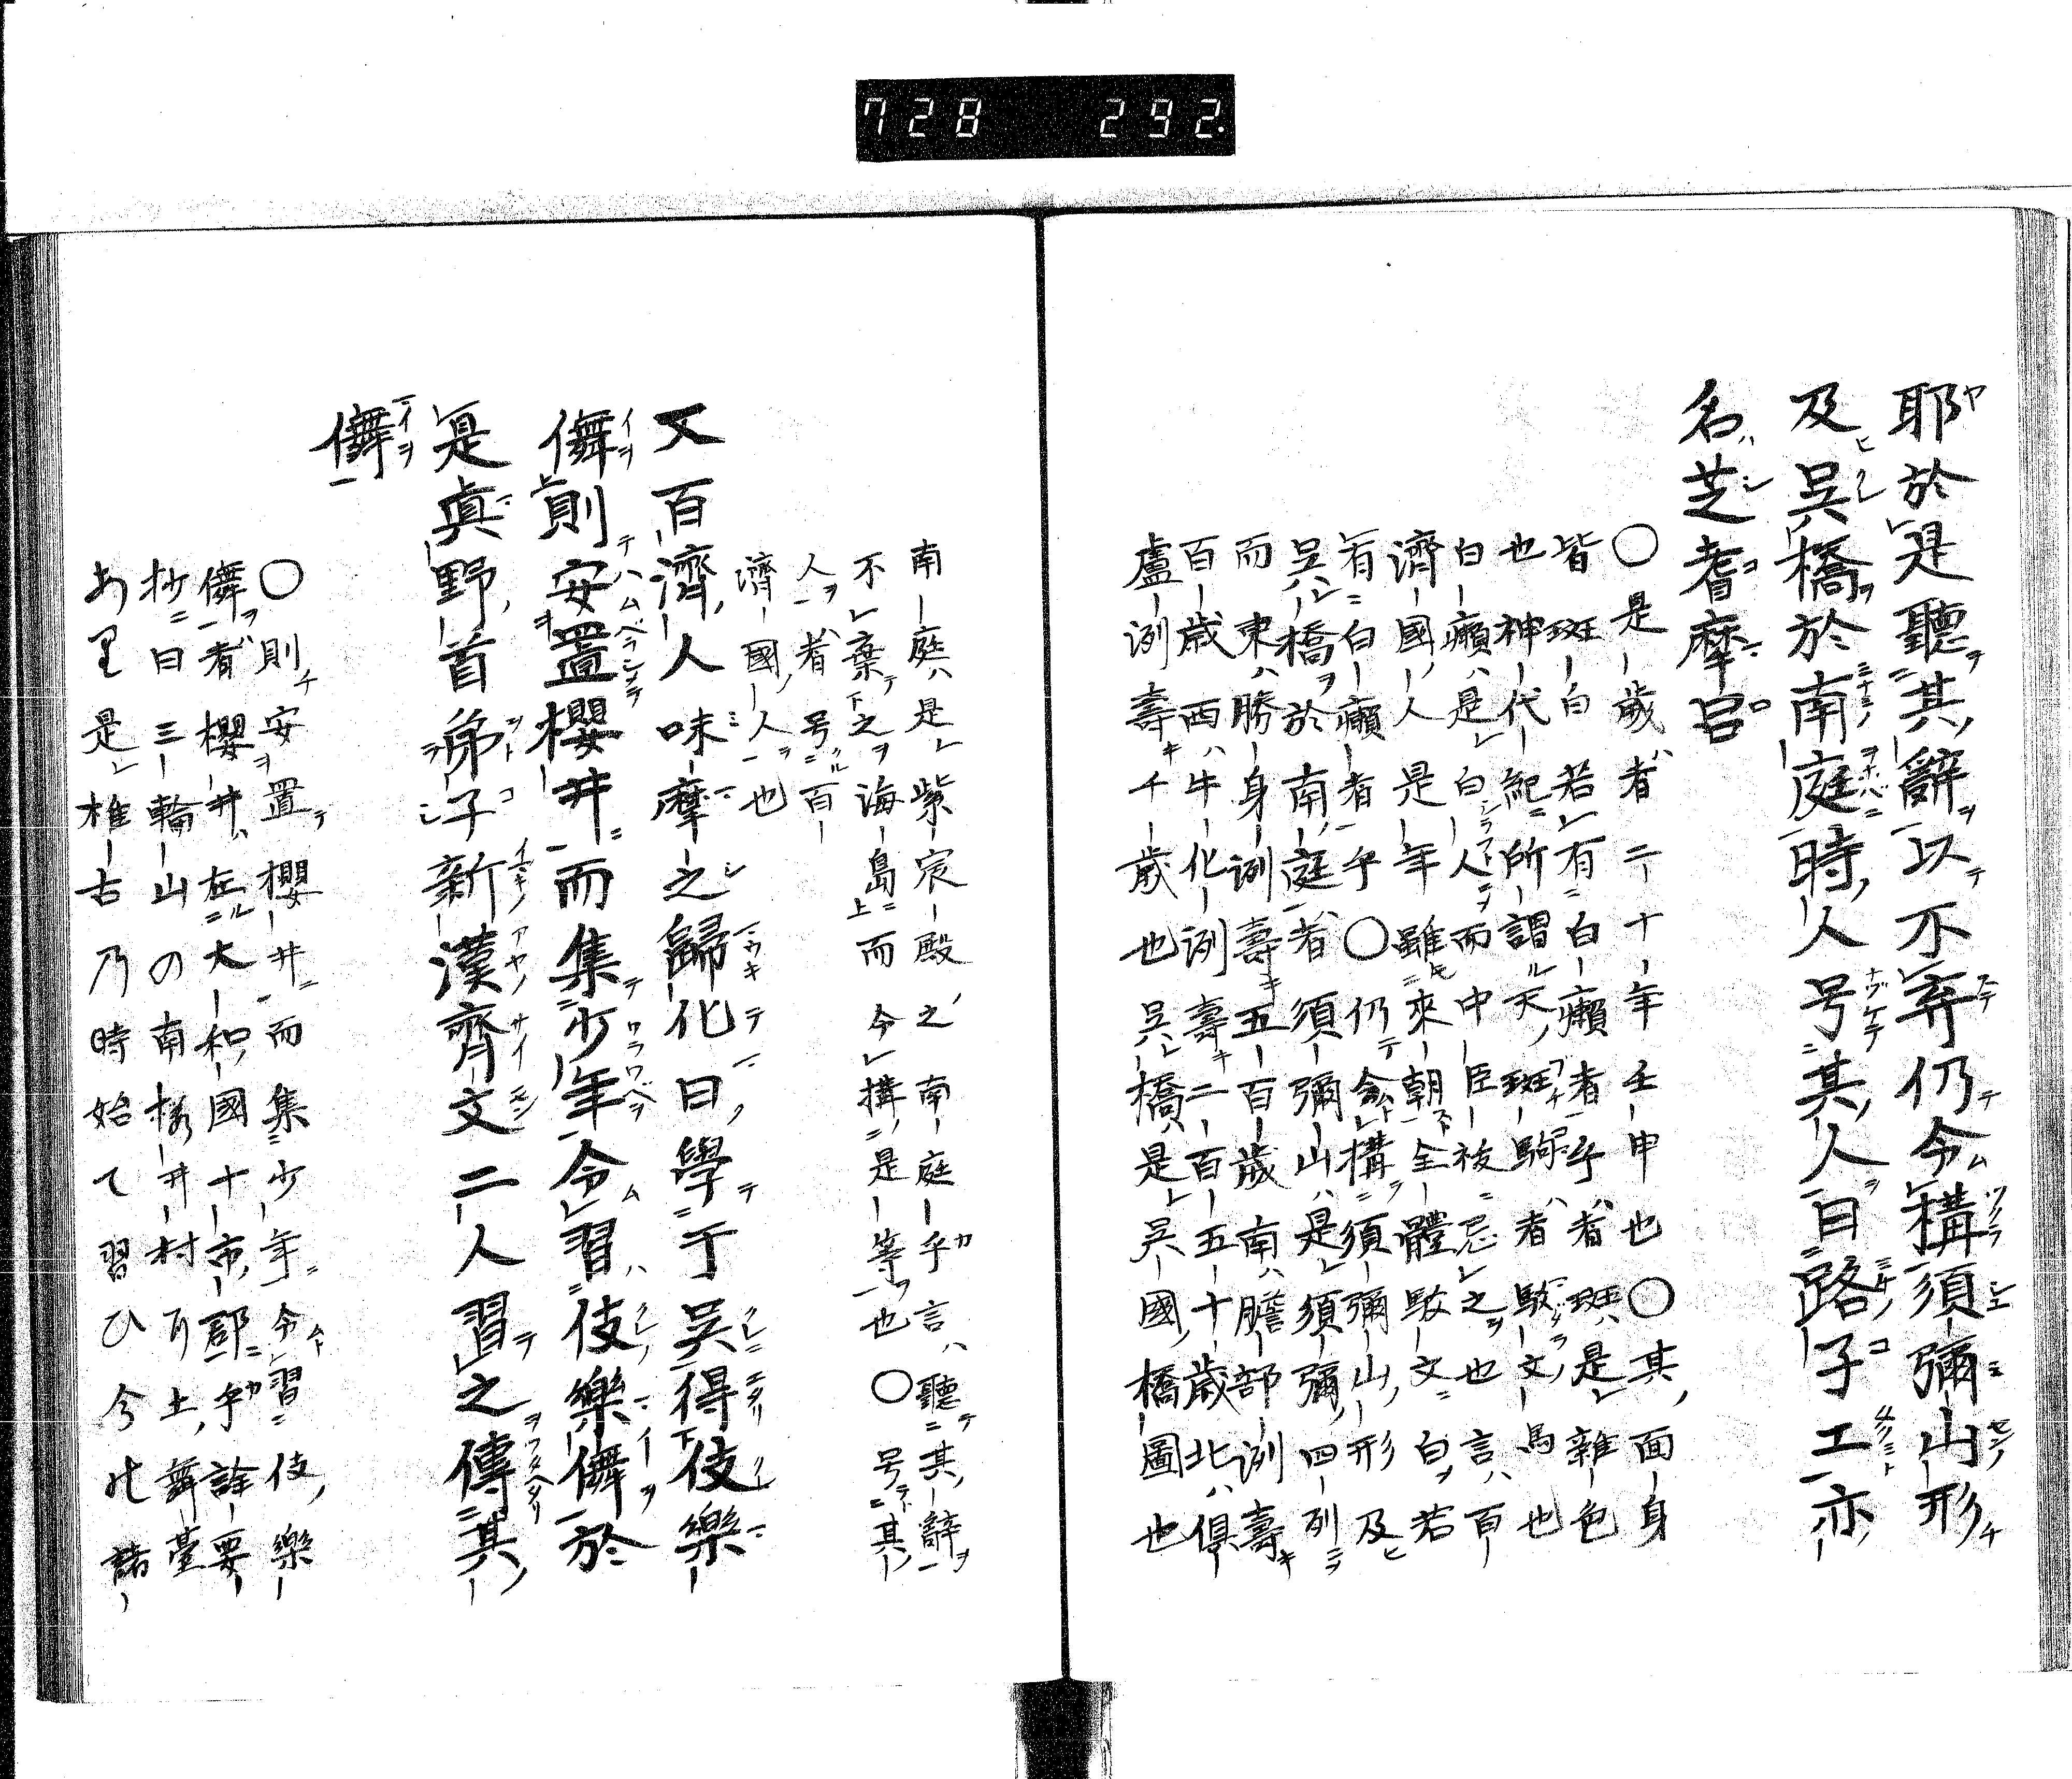 728 292.
耶於是聽其辭以不弃仍令構須彌山形
及吳橋於南庭時人号其人曰路子工亦
名芝耆摩呂
〇是歲者二十年壬申也〇其面身
皆斑白若有白癩者乎者斑是雜色
也神代紀所謂天斑駒者駁文馬也
白癩是白人而中臣祓忌之也言百
濟國人是年雖來朝全體駁文白若
有白癩者乎〇仍令構須彌山形及
吳橋於南庭者須彌山是須彌四列
而東勝身洲壽五百歲南贍部洲壽
百歲西牛化洲壽二百五十歲北俱
盧洲壽千歲也吳橋是吳國橋圖也
南庭是紫宸殿之南庭乎言聽其辭
不棄之海島而今構是等也〇号其
人者号百
濟國人也
又百濟人味摩之歸化曰學于吳得伎樂
儛則安置櫻井而集少年令習伎樂儛於
是真野首弟子新漢齊文二人習之傳其
儛
〇則安置櫻井而集少年令習伎樂
儛者櫻井在大和國十市郡乎詮要
抄曰三輪山の南桜井村に土舞臺
あり是推古乃時始て習ひ今此諸